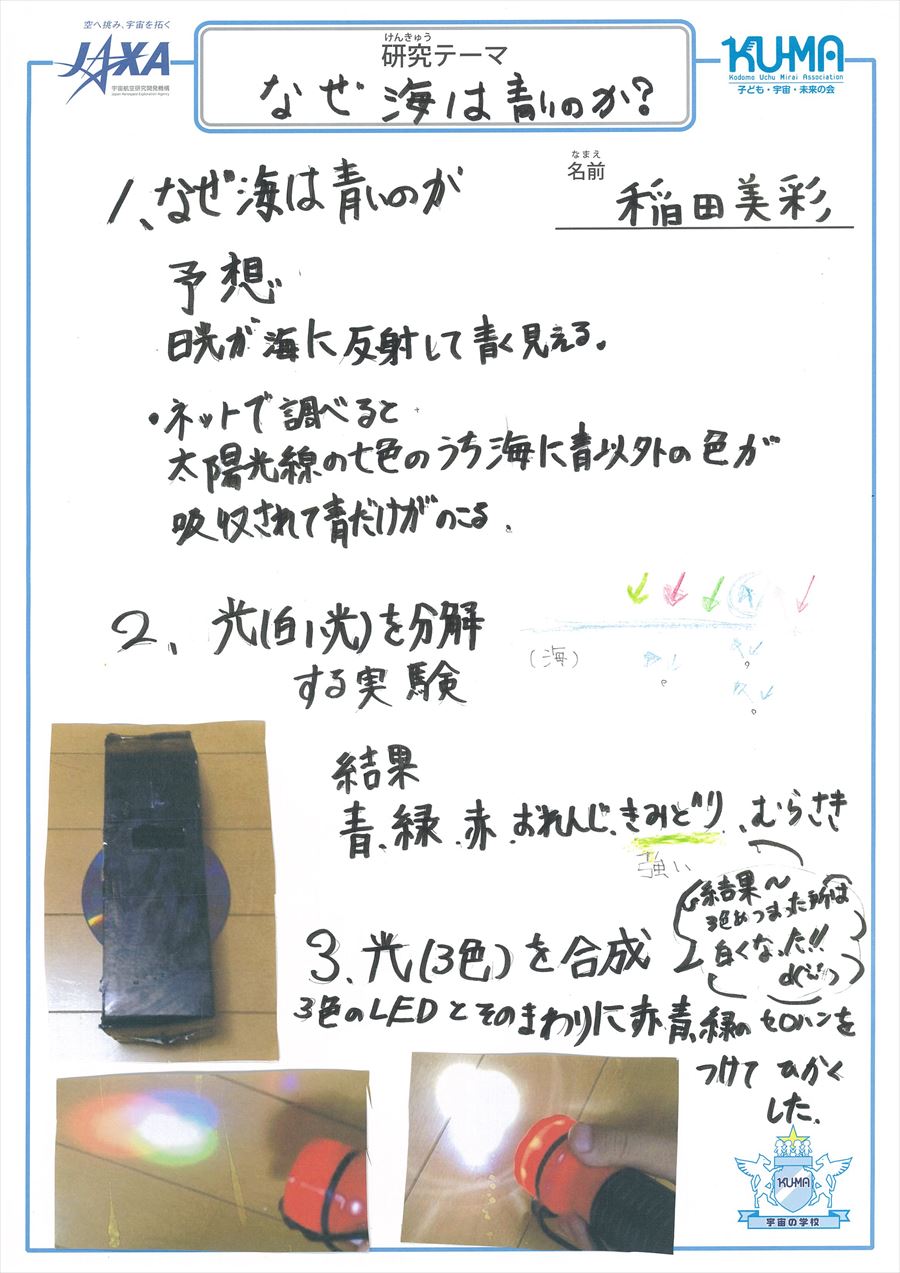 空へ挑み、宇宙を拓く
JAXA
宇宙航空研究開発機構
Japan Aerospace Exploration Agency
けんきゅう
研究テーマ
なぜ海は青いのか?
KU-MA
Kodomo Uchu Mirai Association
子ども・宇宙・未来の会
なまえ
名前
稲田美彩
1、なぜ海は青いのか
予想
日光が海に反射して青く見える。
・ネットで調べると
太陽光線の七色のうち海に青以外の色が
吸収されて青だけがのこる.
(海)
2、光(白い光)を分解
する実験
結果
青、緑、赤、おれんじ、きみどり、むらさき
強い
結果〜
3色あつまった所は
白くなった!!
3、光(3色)を合成
3色のLEDとそのまわりに赤、青、緑のセロハンを
つけてひかく
した.
KU-MA
宇宙の学校